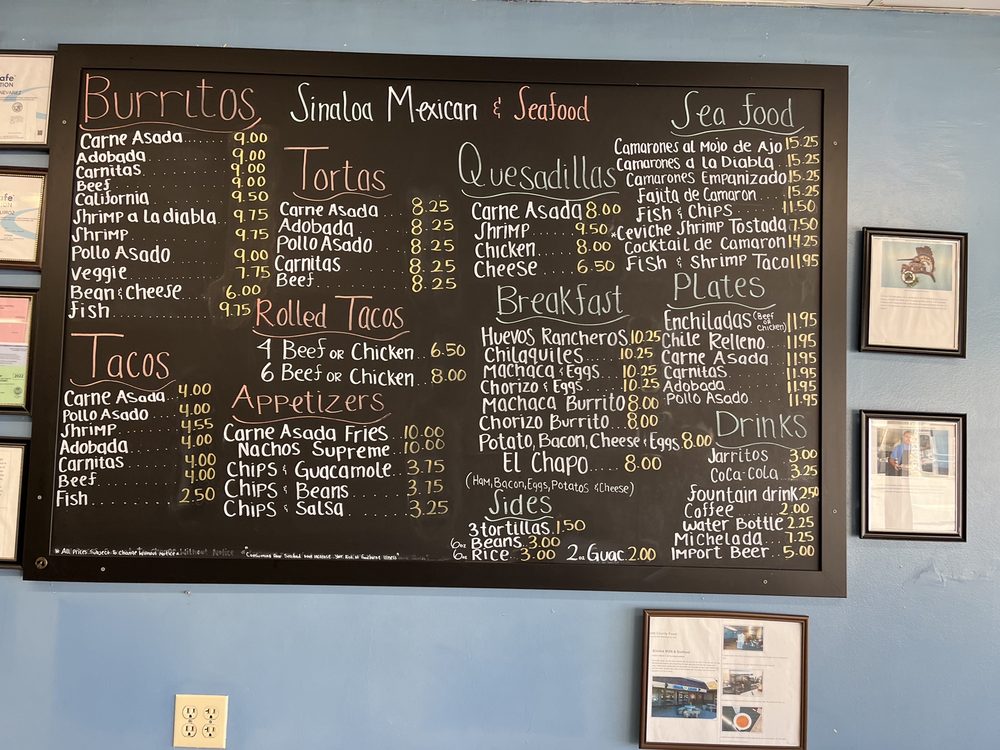 Sinaloa Mexican & Seafood
Burritos
Carne Asada...... 9.00
Adobada 9.00
Carnitas 9.00
Beef 9.00
California 9.50
Shrimp a la diabla.. 9.75
Shrimp 9.75
Pollo Asado 9.00
Veggie 7.75
Bean & Cheese 6.00
Fish 9.75
Tacos
Carne Asada 4.00
Pollo Asado 4.00
Shrimp 4.55
Adobada 4.00
Carnitas 4.00
Beef 4.00
Fish 2.50
Tortas
Carne Asada 8.25
Adobada 8.25
Pollo Asado 8.25
Carnitas 8.25
Beef 8.25
Rolled Tacos
4 Beef or Chicken.. 6.50
6 Beef or Chicken.. 8.00
Appetizers
Carne Asada Fries 10.00
Nachos Supreme 10.00
Chips & Guacamole. 3.75
Chips & Beans 3.75
Chips & Salsa 3.25
Quesadillas
Carne Asada 8.00
Shrimp 9.50
Chicken 8.00
Cheese 6.50
Breakfast
Huevos Rancheros 10.25
Chilaquiles 10.25
Machaca & Eggs 10.25
Chorizo & Eggs 10.25
Machaca Burrito 8.00
Chorizo Burrito 8.00
Potato, Bacon, Cheese & Eggs 8.00
El Chapo..... 8.00
(Ham, Bacon, Eggs, Potatos & Cheese)
Sides
3 tortillas. 1.50
6oz Beans. 3.00
6oz Rice.. 3.00 2oz Guac. 2.00
Sea food
Camarones al Mojo de Ajo 15.25
Camarones a la Diabla.. 15.25
Camarones Empanizado 15.25
Fajita de Camaron 15.25
Fish & Chips 11.50
Ceviche Shrimp Tostada 7.50
Cocktail de Camaron 14.25
Fish & Shrimp Taco 11.95
Plates
Enchiladas (Beef or Chicken) 11.95
Chile Relleno.. 11.95
Carne Asada 11.95
Carnitas 11.95
Adobada 11.95
Pollo Asado 11.95
Drinks
Jarritos 3.00
Coca-Cola. 3.25
fountain drink 2.50
Coffee 2.00
Water Bottle 2.25
Michelada.. 7.25
Import Beer.. 5.00
* All Prices Subject to Change Without Notice